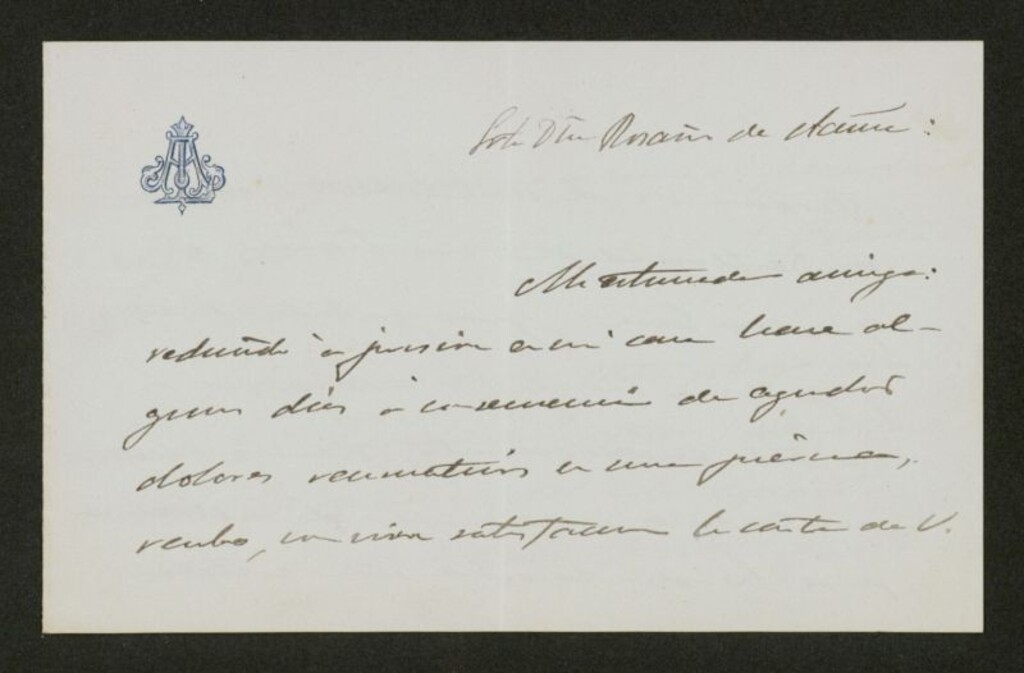 Srta Dña Rosario de Acuña:
Mi estimada amiga:
reducido à prision en mi casa hace al-
gunos dias à consecuencia de agudos
dolores reumaticos en una pierna,
recibo, con viva satisfaccion la carta de V.